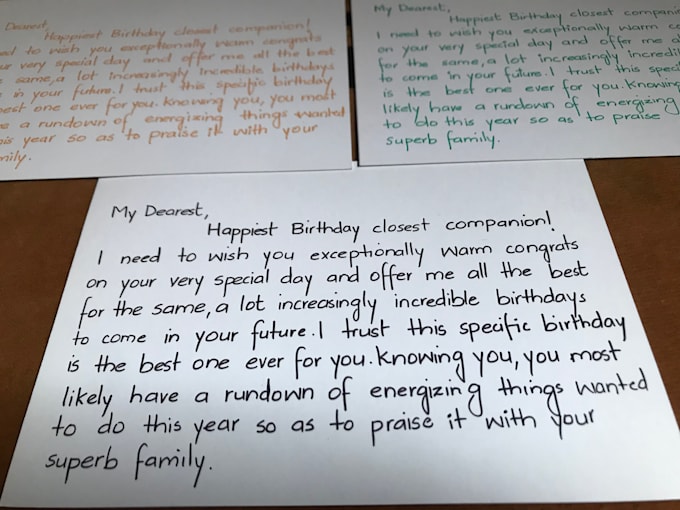 Dearest,
Happiest Birthday closest companion!
to wish you exceptionally warm congrats
very special day and offer me all the best
same, a lot increasingly incredible birthdays
in your future. I trust this specific birthday
best one ever for you. Knowing you, you most
a rundown of energizing things wanted
year so as to praise it with your
My Dearest,
Happiest Birthday closest
I need to wish you exceptionally warm
on your very special day and offer me
for the same, a lot increasingly
to come in your future. I trust this
is the best one ever for you. Knowing
likely have a rundown of energizing
to do this year so as to praise
superb family.
My Dearest,
Happiest Birthday closest companion!
I need to wish you exceptionally warm congrats
on your very special day and offer me all the best
for the same, a lot increasingly incredible birthdays
to come in your future. I trust this specific birthday
is the best one ever for you. Knowing you, you most
likely have a rundown of energizing things wanted
to do this year so as to praise it with your
superb family.